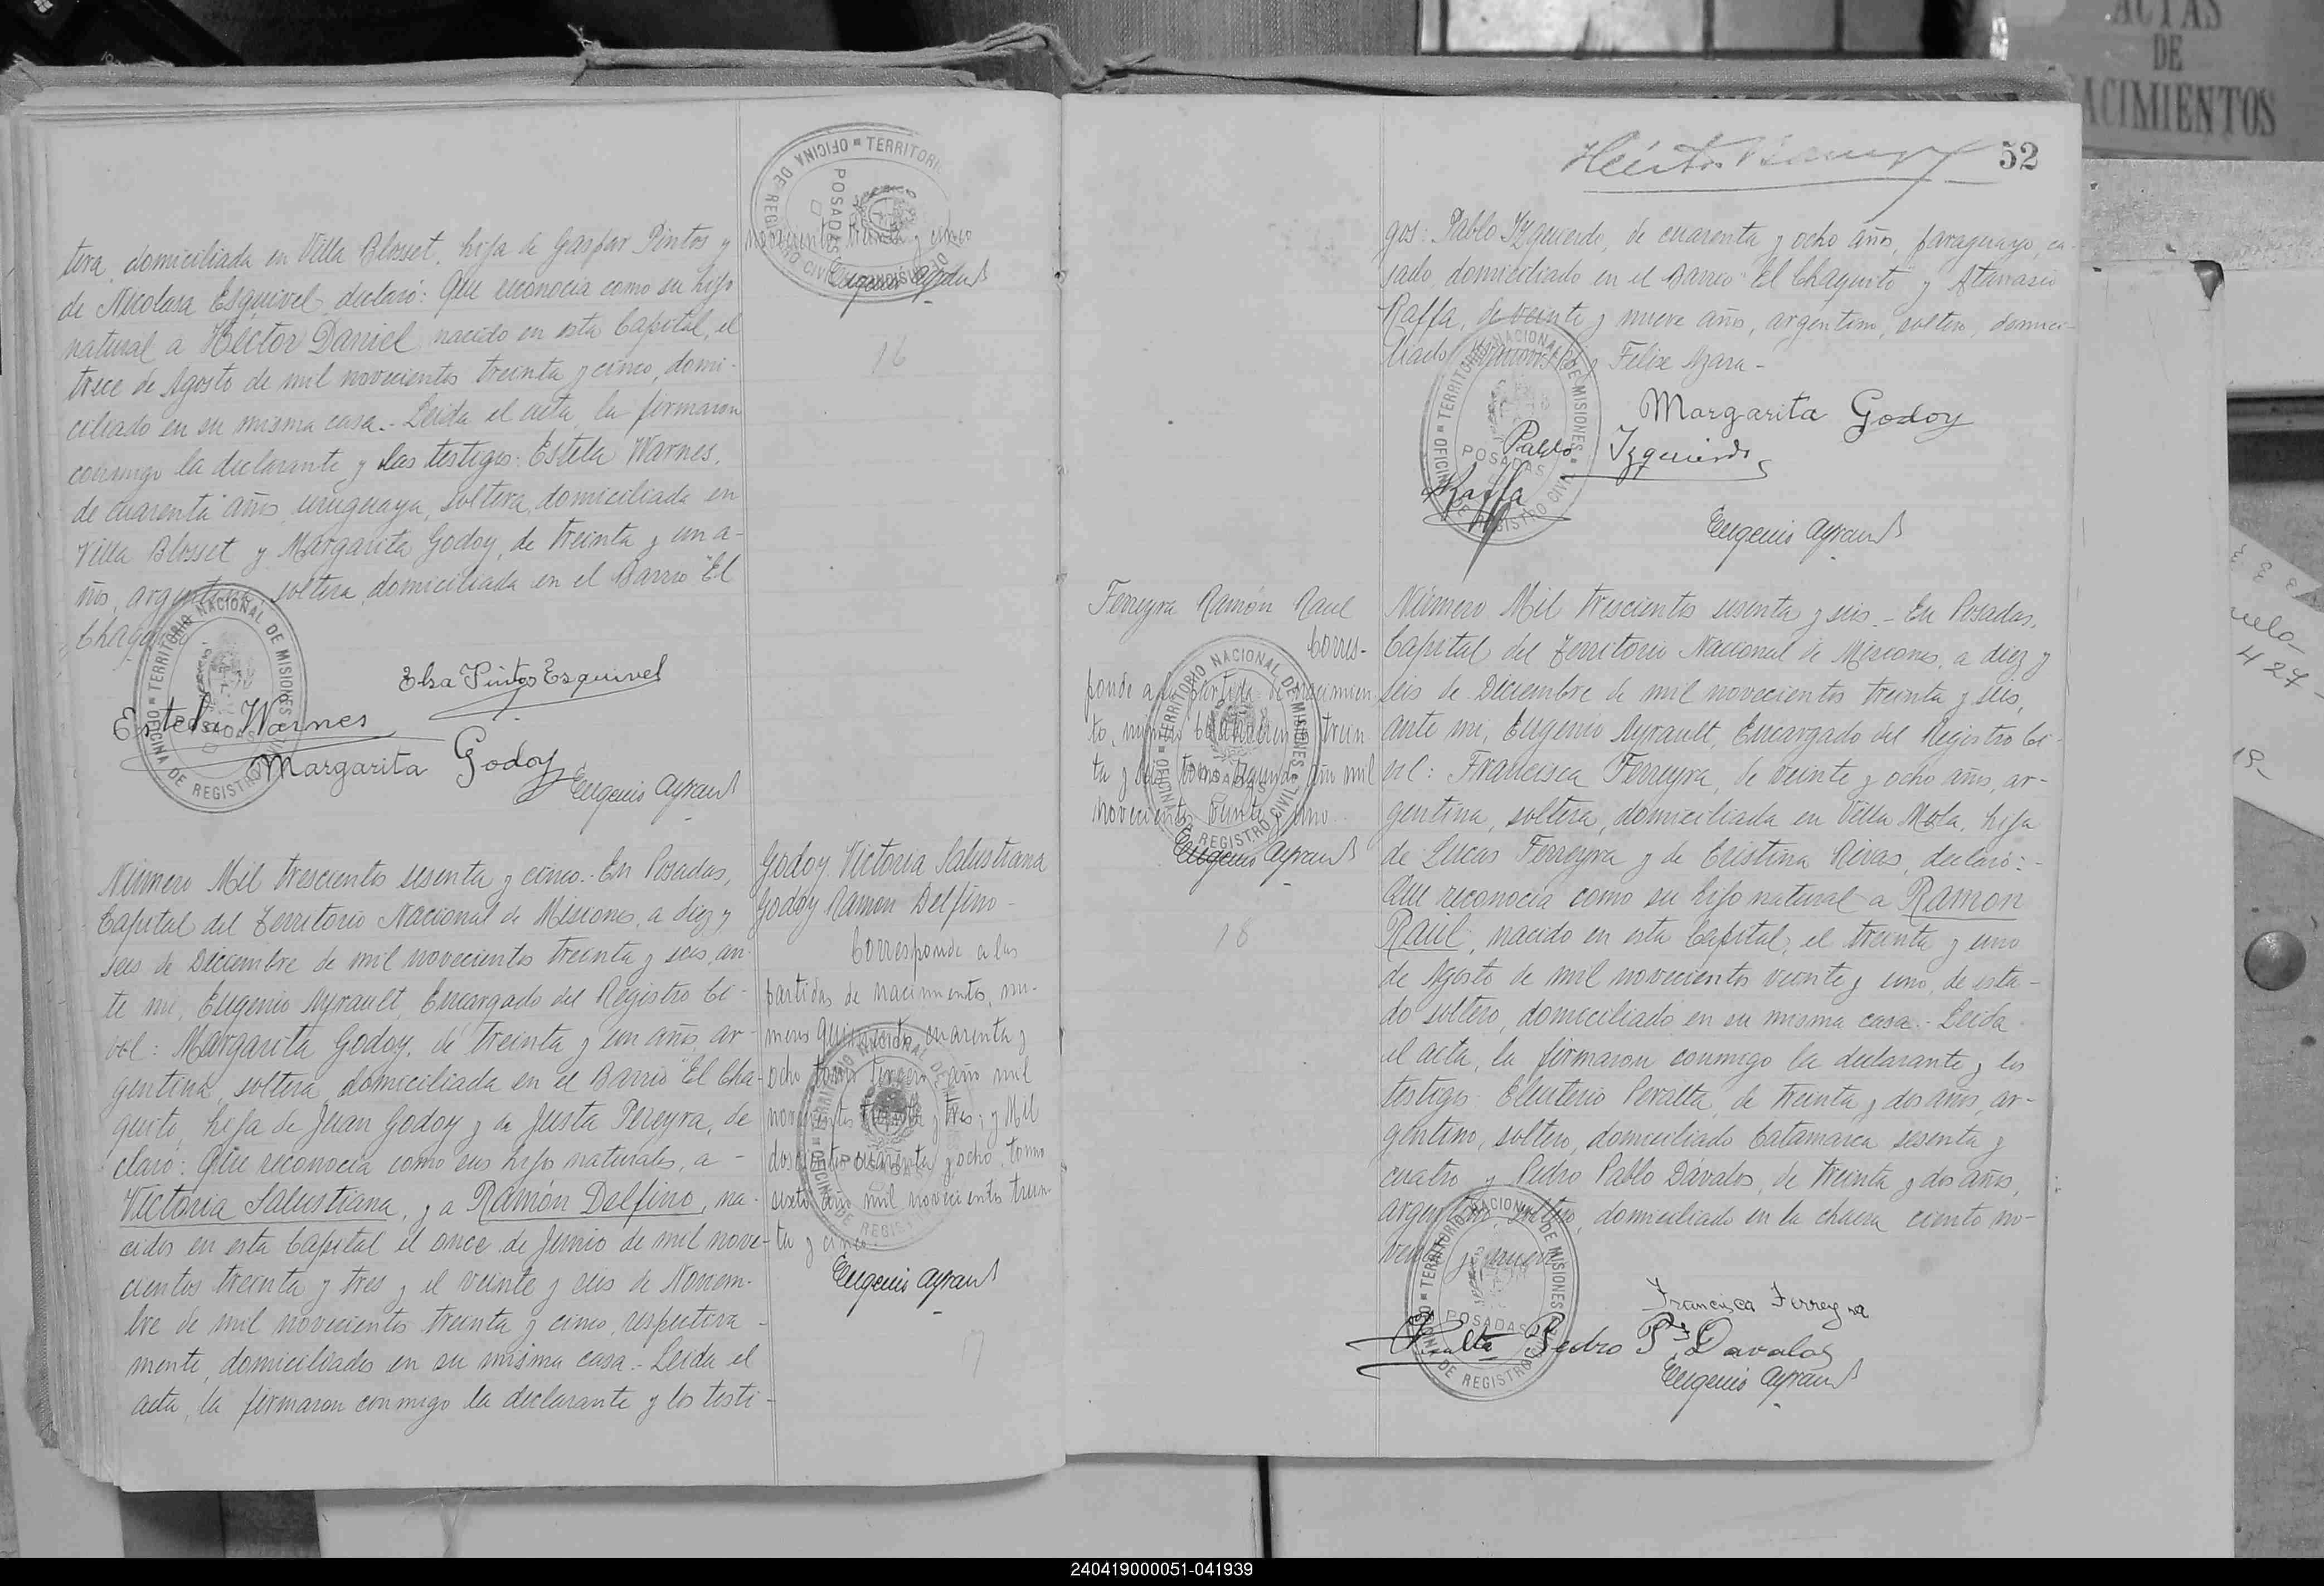 tera, domiciliada en Villa Blosset, hija de Gaspar Pintos y
de Nicolasa Esquivel, declaró: Que reconocia como su hijo
natural a Hector Daniel, nacido en esta Capital, el
trece de Agosto de mil novecientos treinta y cinco, domi-
ciliado en su misma casa.- Leida el acta, la firmaron
conmigo la declarante y las testigos: Estela Warnes,
de cuarenta años, uruguaya, soltera, domiciliada en
Villa Blosset y Margarita Godoy, de treinta y un a-
ños, argentina, soltera, domiciliada en el Barrio "El
Chaquito
Elsa Pintos Esquivel
Estela Warnes
Margarita Godoy
Eugenio Ayrault
novecientos treinta y cinco
Eugenio Ayrault
16
OFICINA DE REGISTRO CIVIL
TERRITORIO NACIONAL DE MISIONES
POSADAS
Número Mil trescientos sesenta y cinco.- En Posadas,
Capital del Territorio Nacional de Misiones, a diez y
seis de Diciembre de mil novecientos treinta y seis, an-
te mi, Eugenio Ayrault, Encargado del Registro Ci-
vil: Margarita Godoy, de treinta y un años, ar-
gentina, soltera, domiciliada en el Barrio "El Cha-
quito, hija de Juan Godoy y de Justa Pereyra, de
claró: Que reconocia como sus hijos naturales, a -
Victoria Salustiana, y a Ramón Delfino, na-
cidos en esta Capital el once de Junio de mil nove-
cientos treinta y tres y el veinte y seis de Noviem-
bre de mil novecientos treinta y cinco, respectiva-
mente, domiciliados en su misma casa.- Leida el
acta, la firmaron conmigo la declarante y los testi-
Godoy Victoria Salustiana
Godoy Ramon Delfino -
Corresponde a las
partidas de nacimientos, nu-
meros quinientos cuarenta y
ocho tomo tercero año mil
novecientos treinta y tres; y Mil
doscientos cuarenta y ocho, tomo
sexto año mil novecientos trein
ta y cinco.
Eugenio Ayrault
17
52
gos: Pablo Izquierdo, de cuarenta y ocho años, paraguayo, ca-
sado, domiciliado en el Barrio "El Chaquito" y Atanasio
Raffa, de veinte y nueve años, argentino, soltero, domici-
liado y Felix Azara -
Margarita Godoy
Pablo Izquierdo
Raffa
Eugenio Ayrault
Ferreyra Ramón Raul
Corres-
ponde a la partida de nacimien
to, número trein
ta y seis tomo segundo año mil
novecientos veinte y uno..
Eugenio Ayrault
18
Número Mil trescientos sesenta y seis.- En Posadas,
Capital del Territorio Nacional de Misiones, a diez y
seis de Diciembre de mil novecientos treinta y seis,
ante mi, Eugenio Ayrault, Encargado del Registro Ci-
vil: Francisca Ferreyra, de veinte y ocho años, ar-
gentina, soltera, domiciliada en Villa Mola, hija
de Lucas Ferreyra y de Cristina Rivas, declaró:-
Que reconocia como su hijo natural a Ramon
Raúl, nacido en esta Capital, el treinta y uno
de Agosto de mil novecientos veinte y uno, de esta-
do soltero, domiciliado en su misma casa.- Leida
el acta, la firmaron conmigo la declarante y los
testigos: Eleuterio Peralta, de treinta y dos años, ar-
gentino, soltero, domiciliado Catamarca sesenta y
cuatro y Pedro Pablo Dávalos, de treinta y dos años,
argentino, soltero, domiciliado en la chacra ciento no-
venta y nueve
Francisca Ferreyra
Peralta Pedro P. Davalos
Eugenio Ayrault
ACTAS
DE
NACIMIENTOS
427
19-
240419000051-041939